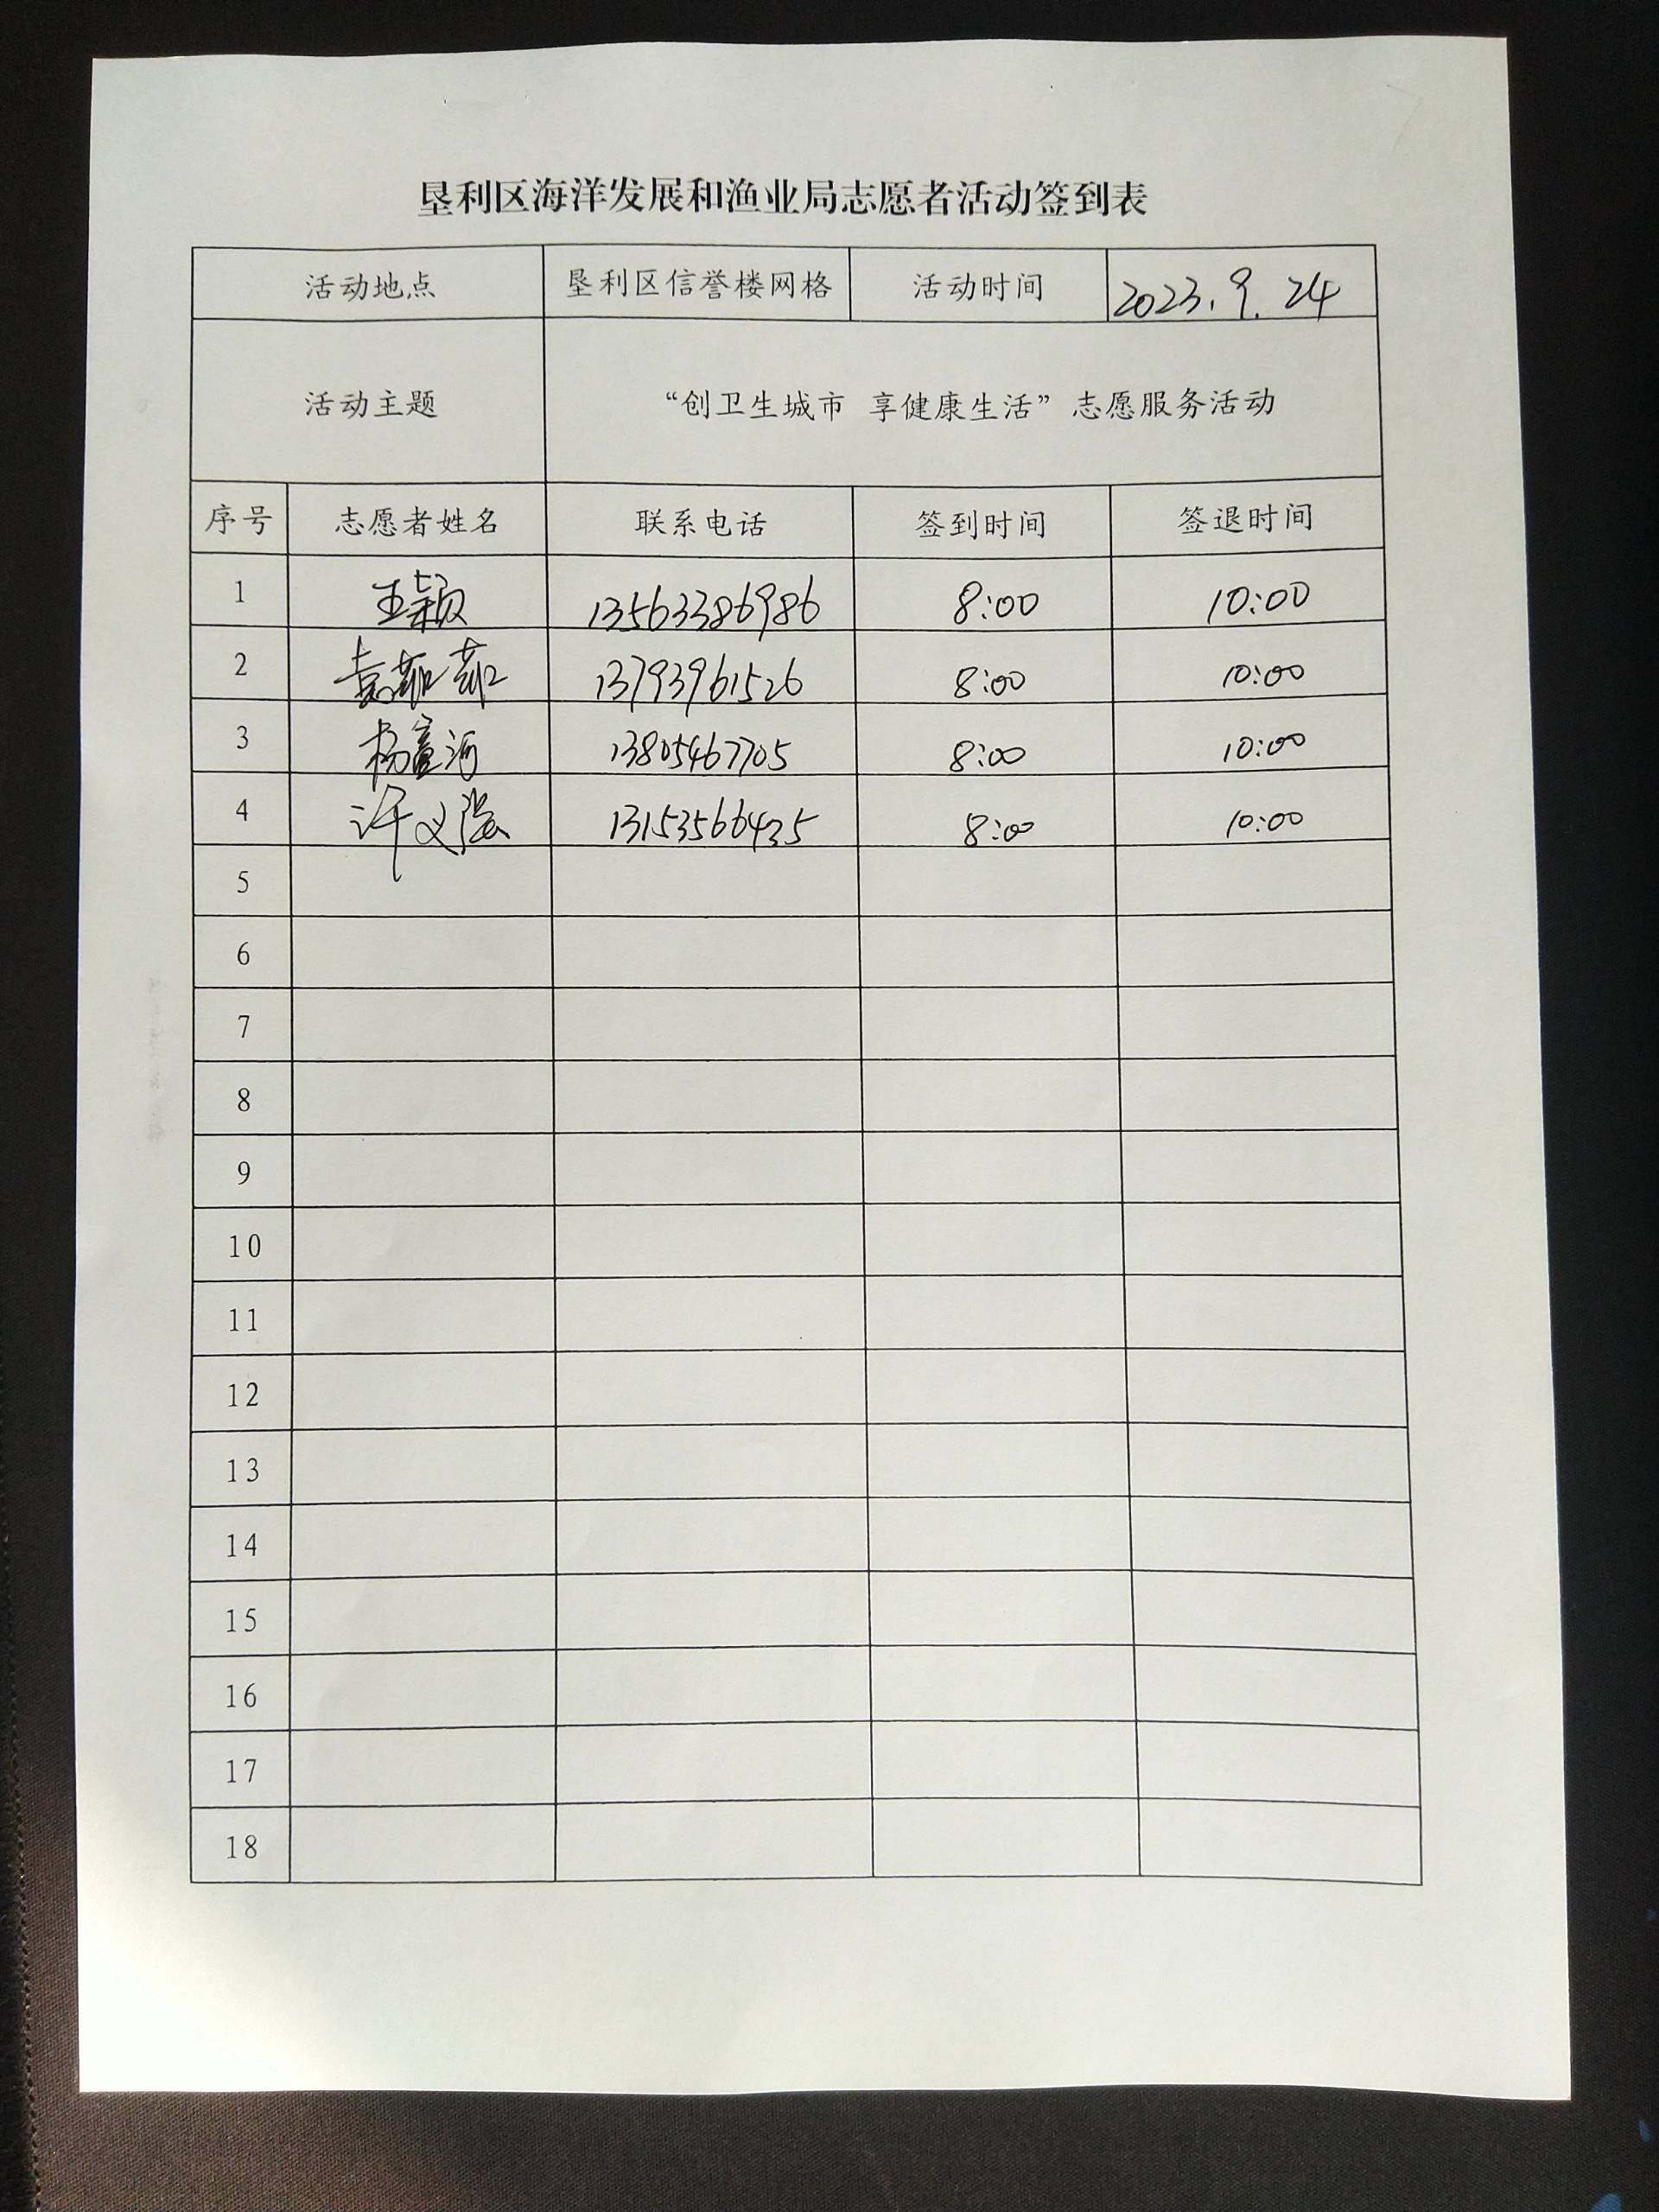 垦利区海洋发展和渔业局志愿者活动签到表
活动地点 垦利区信誉楼网格 活动时间 2023.9.24
活动主题 “创卫生城市 享健康生活”志愿服务活动
序号 志愿者姓名 联系电话 签到时间 签退时间
1 王颖 13563386986 8:00 10:00
2 袁茹茹 13793961526 8:00 10:00
3 杨 13805467705 8:00 10:00
4 许义强 13153566435 8:00 10:00
5
6
7
8
9
10
11
12
13
14
15
16
17
18